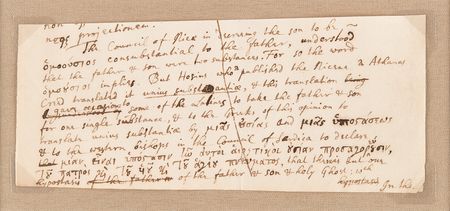 non
projectionem.
The Council of Nice in decreeing the son to be
ὁμοούσιος consubstantial to the father, understood
that the father & son were two substances. For so the word
ὁμοούσιος implies. But Hosius who published the Nicene
Creed translated it unius substantiæ, & this translation being
gave occasion to some of the Latins to take the father & son
for one single substance, & to the Greeks of this opinion to
translate unius substantiæ by μιᾶς οὐσίας and μιᾶς ὑποστάσεως
& to the western bishops in the Council of Sardica to declare
μίαν εἶναι ὑπόστασιν
τοῦ πατρὸς καὶ τοῦ υἱοῦ καὶ τοῦ ἁγίου πνεύματος, that there is but one
hypostasis of the father & son & holy Ghost: wch
hypostasis In the